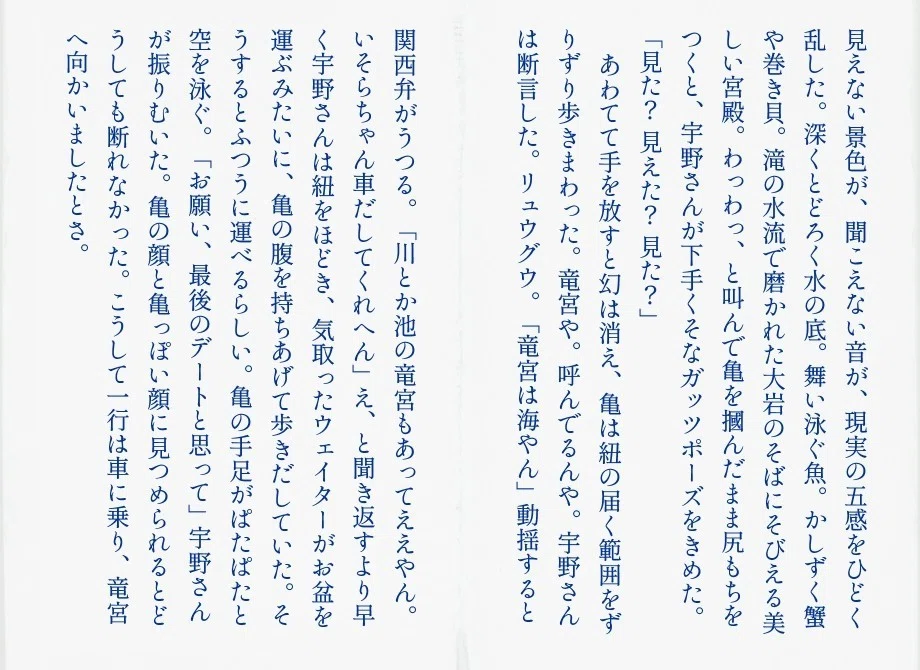 見えない景色が、聞こえない音が、現実の五感をひどく
乱した。深くとどろく水の底。舞い泳ぐ魚。かしずく蟹
や巻き貝。滝の水流で磨かれた大岩のそばにそびえる美
しい宮殿。わっわっ、と叫んで亀を摑んだまま尻もちを
つくと、宇野さんが下手くそなガッツポーズをきめた。
「見た？ 見えた？ 見た？」
あわてて手を放すと幻は消え、亀は紐の届く範囲をず
りずり歩きまわった。竜宮や。呼んでるんや。宇野さん
は断言した。リュウグウ。「竜宮は海やん」動揺すると
関西弁がうつる。「川とか池の竜宮もあってええやん。
いそらちゃん車だしてくれへん」え、と聞き返すより早
く宇野さんは紐をほどき、気取ったウェイターがお盆を
運ぶみたいに、亀の腹を持ちあげて歩きだしていた。そ
うするとふつうに運べるらしい。亀の手足がぱたぱたと
空を泳ぐ。「お願い、最後のデートと思って」宇野さん
が振りむいた。亀の顔と亀っぽい顔に見つめられるとど
うしても断れなかった。こうして一行は車に乗り、竜宮
へ向かいましたとさ。